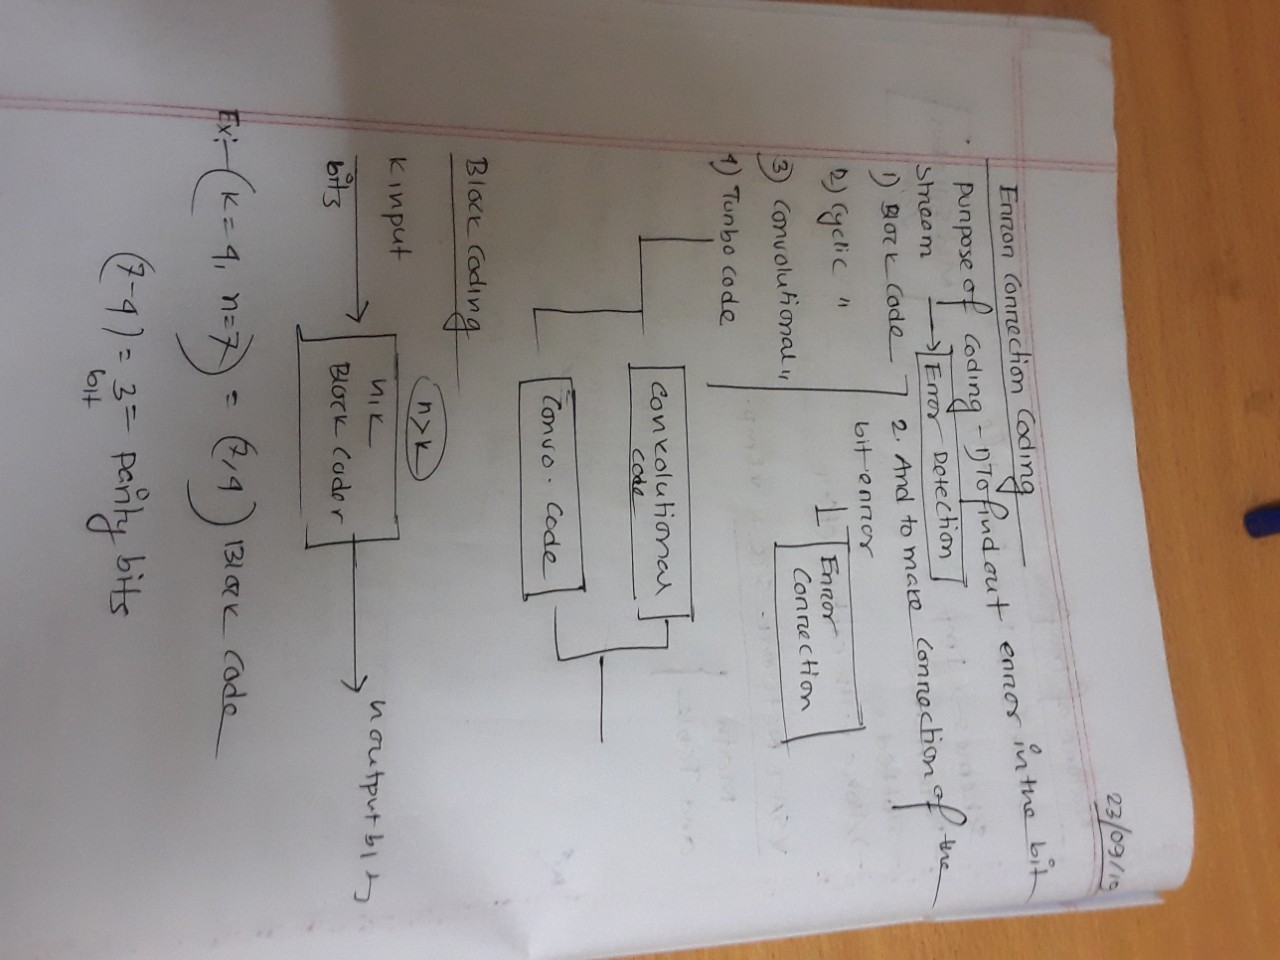 23/09/19
Error Correction Coding
Purpose of coding - 1) To find out error in the bit
stream → Error Detection
2. And to make correction of the
bit error
↓
Error
Correction
1) Block Code
2) Cyclic "
3) Convolutional "
4) Turbo code
Convolutional
code
Convo. Code
Block Coding
n>k
k input
bits
n,k
Block Coder
n output bits
Ex:- (k=4, n=7) = (7,4) Block code
(7-4) = 3 = parity bits
bit